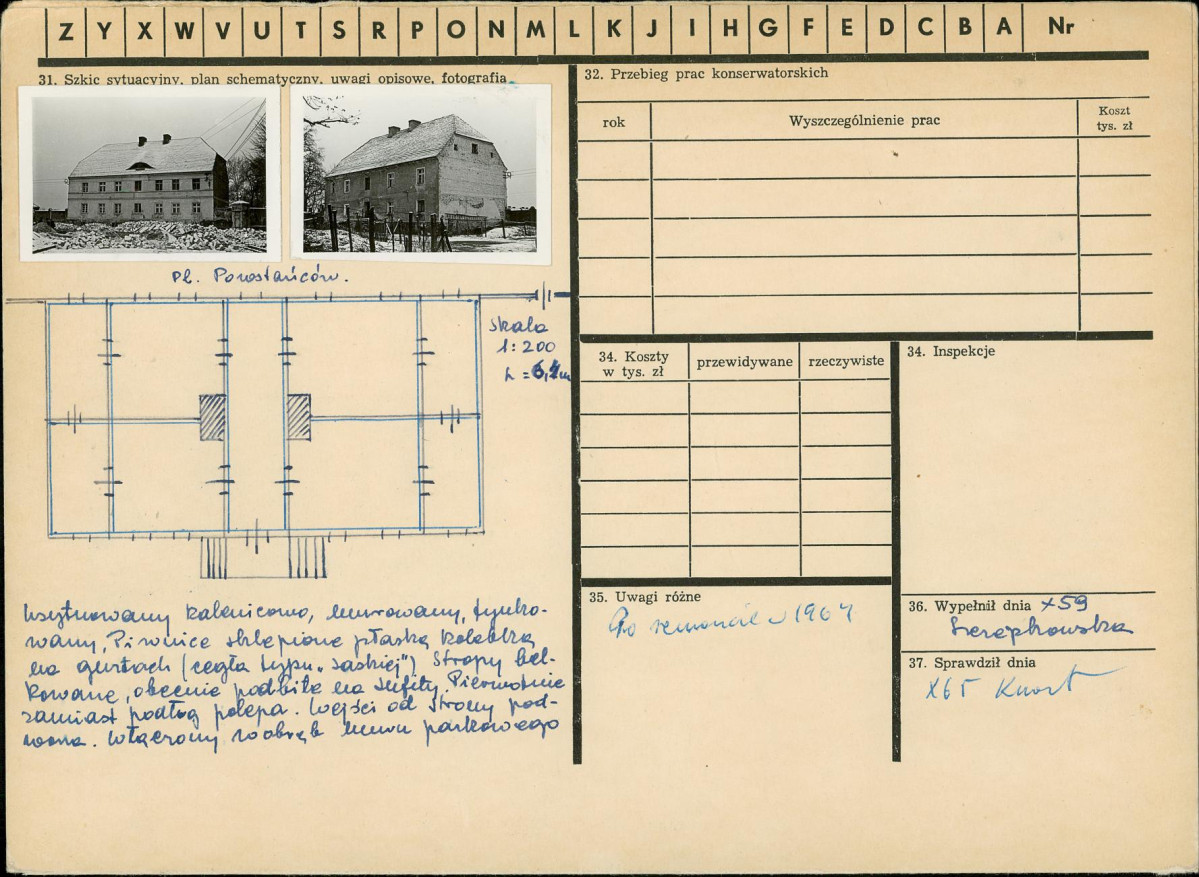 Z Y X W V U T S R P O N M L K J I H G F E D C B A Nr
31. Szkic sytuacyjny, plan schematyczny, uwagi opisowe, fotografia
pl. Powstańców.
skala
1:200
Usytuowany kalenicowo, murowany, tynko-
wany, Piwnice sklepione płaską kolebką
na gurtach (cegła typu „saskiej") Stropy bel-
kowane, obecnie podbite na sufity. Pierwotnie
zamiast podłóg polepa. Wejści od strony pod-
worca. Włączony w obręb muru parkowego
32. Przebieg prac konserwatorskich
rok Wyszczególnienie prac Koszt
tys. zł
34. Koszty
w tys. zł przewidywane rzeczywiste
34. Inspekcje
35. Uwagi różne
Po remoncie w 1964
36. Wypełnił dnia X59
37. Sprawdził dnia
X65